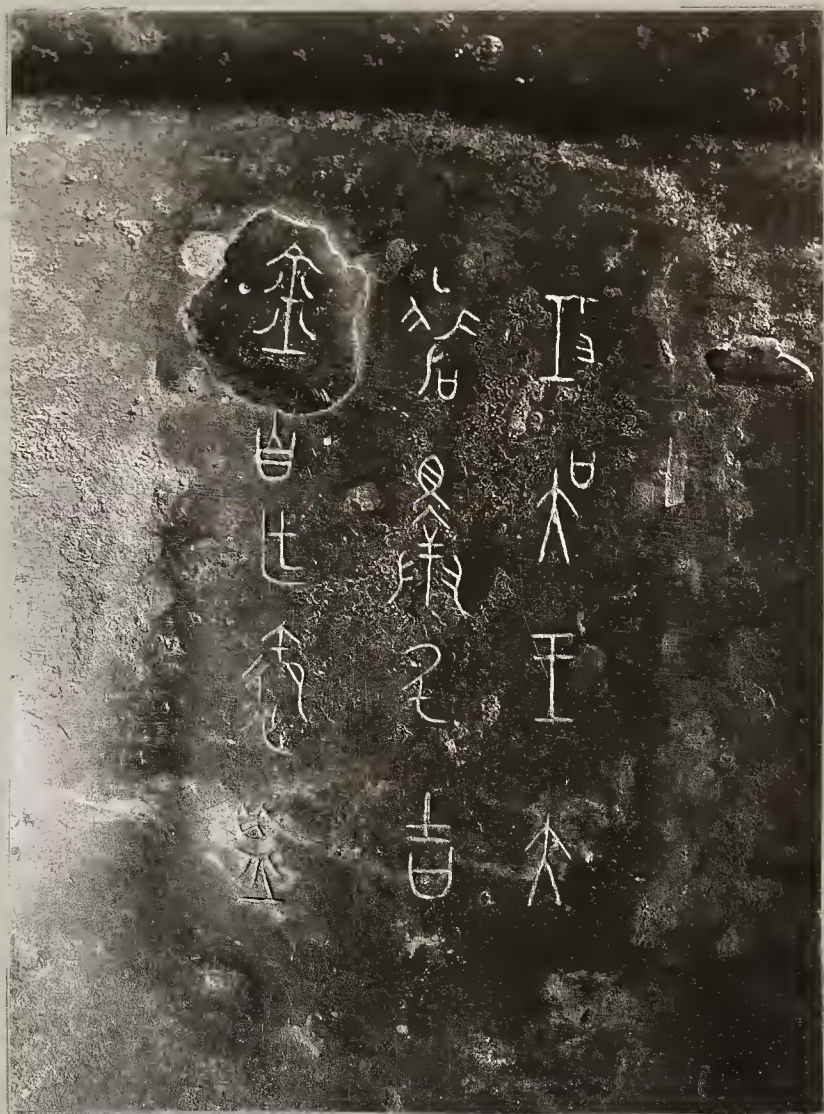 攻吳王夫
差擇氒吉
金自乍御監